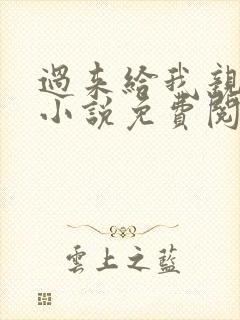 過來給我親
小說免費閱
雲上之藍